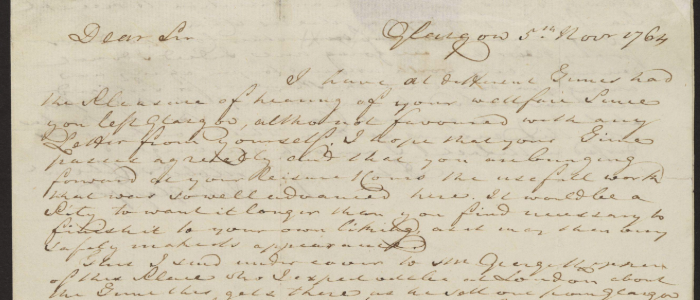 Dear Sir Glasgow 5th Novr 1764
I have at different times had
the Pleasure of hearing of your wellfare Since
you left Glasgow, altho not favoured with any
Letter from yourself; I hope that your Time
passes agreeably and that you are bringing
forward at your Leisure Hours the usefull work
that was so well advanced here. It would be a
Pity to want it longer than you find necessary to
finish it to your own liking, as it may then very
safely make its appearance.
this I send under cover to Mr George
of this Place who I expect will be at London about
the time this gets there, as he sett out from Glasgow